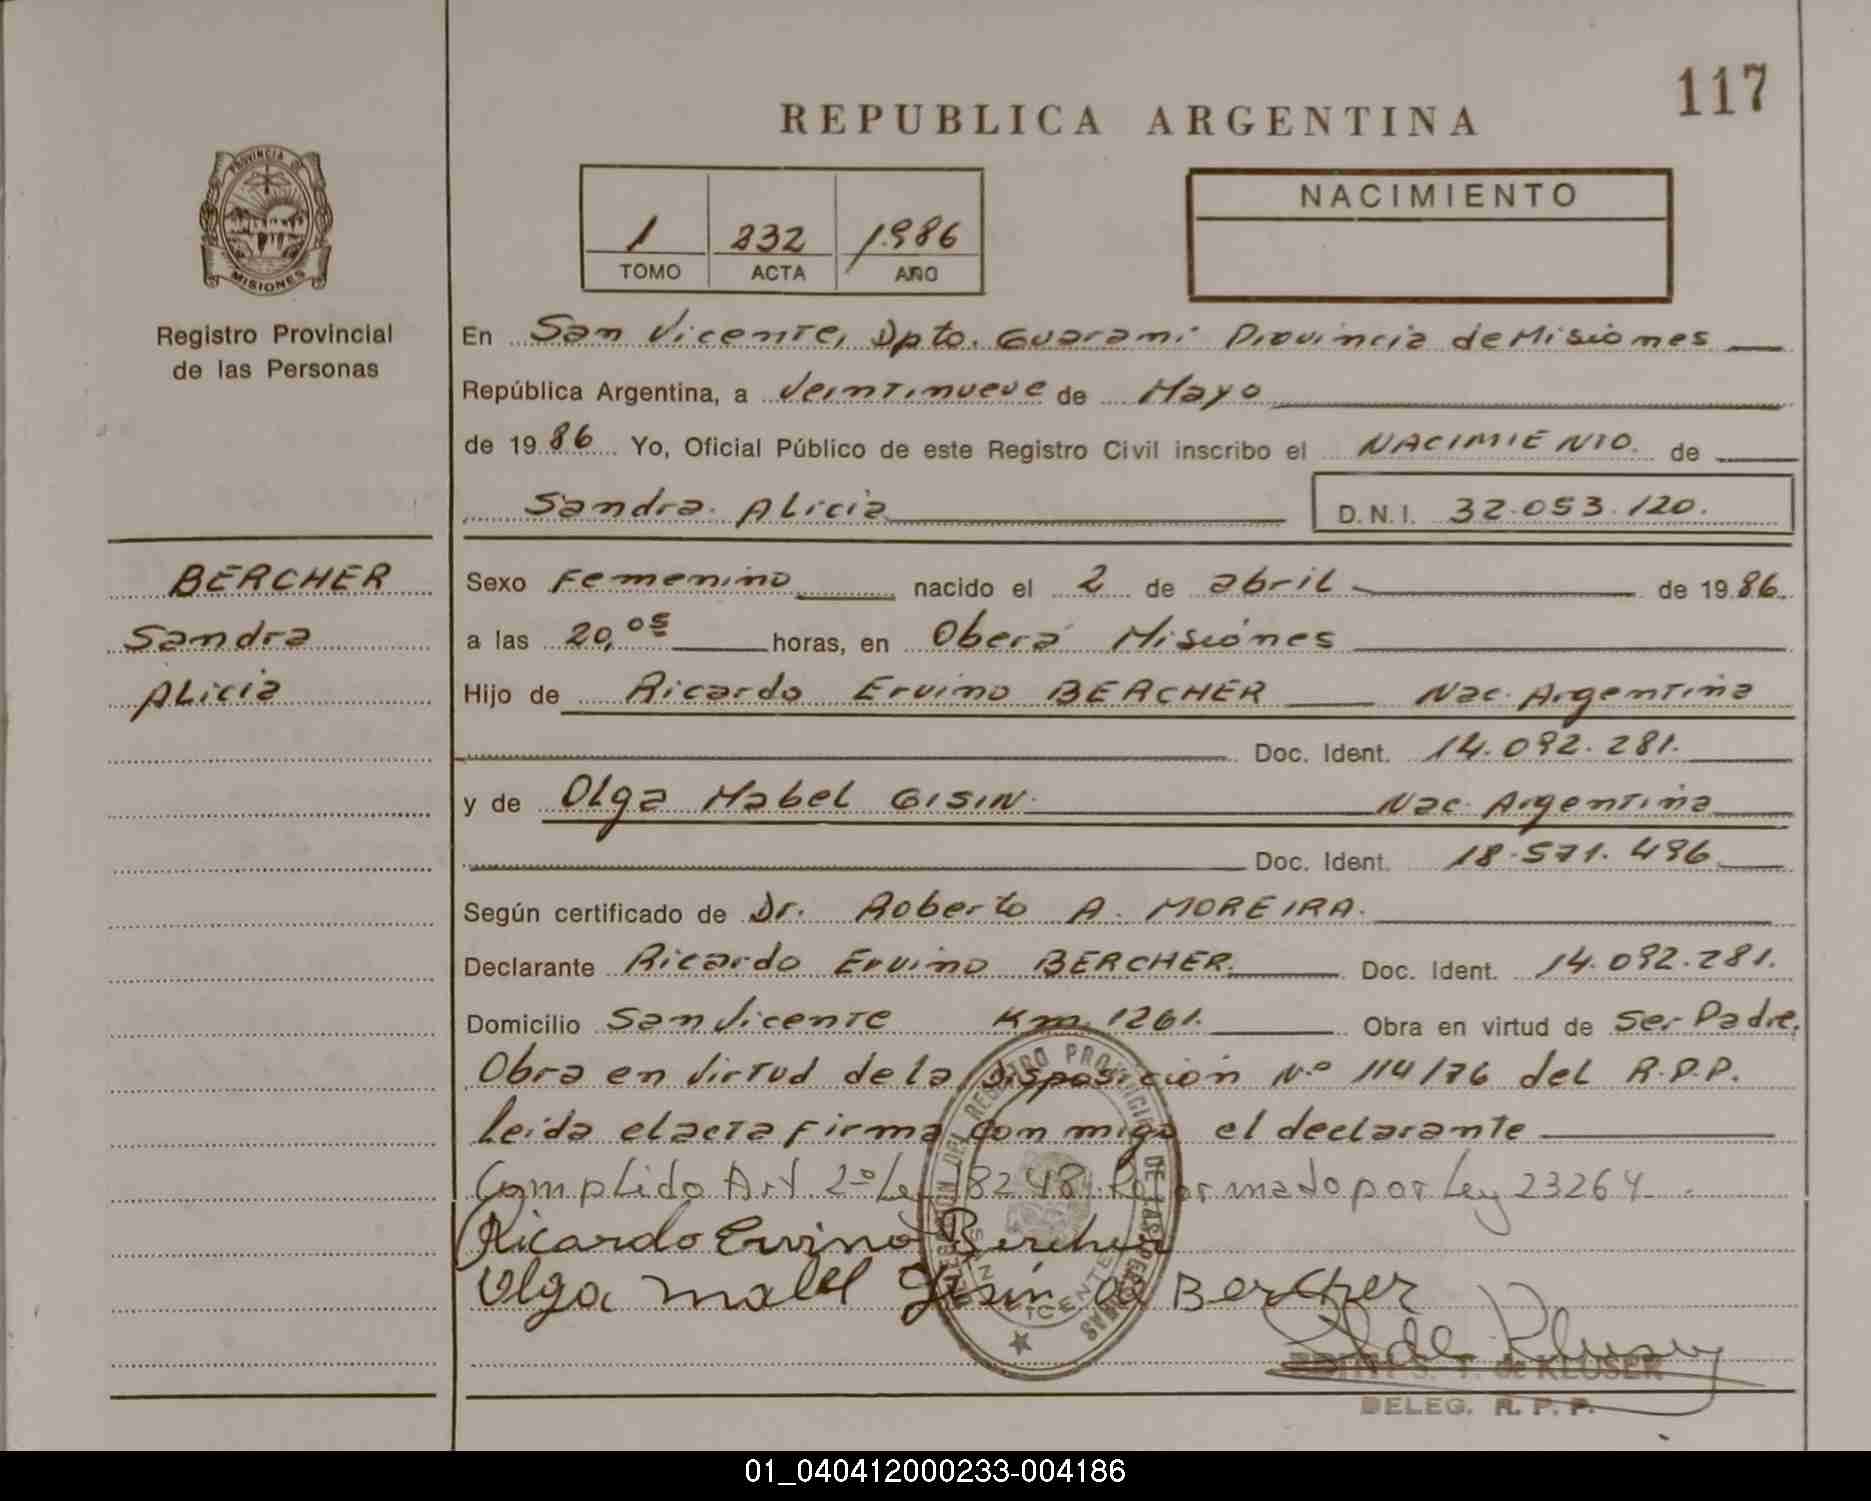 117
REPUBLICA ARGENTINA
PROVINCIA DE
MISIONES
Registro Provincial
de las Personas
1 232 1986
TOMO ACTA AÑO
NACIMIENTO
En San Vicente, Dpto. Guarani Provincia de Misiones
República Argentina, a Veintinueve de Mayo
de 19 86 Yo, Oficial Público de este Registro Civil inscribo el NACIMIENTO. de
Sandra Alicia D.N.I. 32.053.120.
BERCHER
Sandra
Alicia
Sexo Femenino nacido el 2 de abril de 19 86.
a las 20,05 horas, en Oberá Misiones
Hijo de Ricardo Ervino BERCHER Nac. Argentina
Doc. Ident. 14.092.281.
y de Olga Mabel GISIN. Nac. Argentina
Doc. Ident. 18.571.496
Según certificado de Dr. Roberto A. MOREIRA.
Declarante Ricardo Ervino BERCHER. Doc. Ident. 14.092.281.
Domicilio San Vicente Km. 1261. Obra en virtud de ser Padre.
Obra en virtud de la disposición Nº 114/76 del R.P.P.
leida el acta firma con migo el declarante
Cumplido Art. 2º Ley 18248 Reformado por Ley 23264.
Ricardo Ervino Bercher
Olga Mabel Gisin de Bercher
DELEGACION DEL REGISTRO PROVINCIAL DE LAS PERSONAS
SAN VICENTE
S. T. de KLUSER
DELEG. R. P. P.
01_040412000233-004186